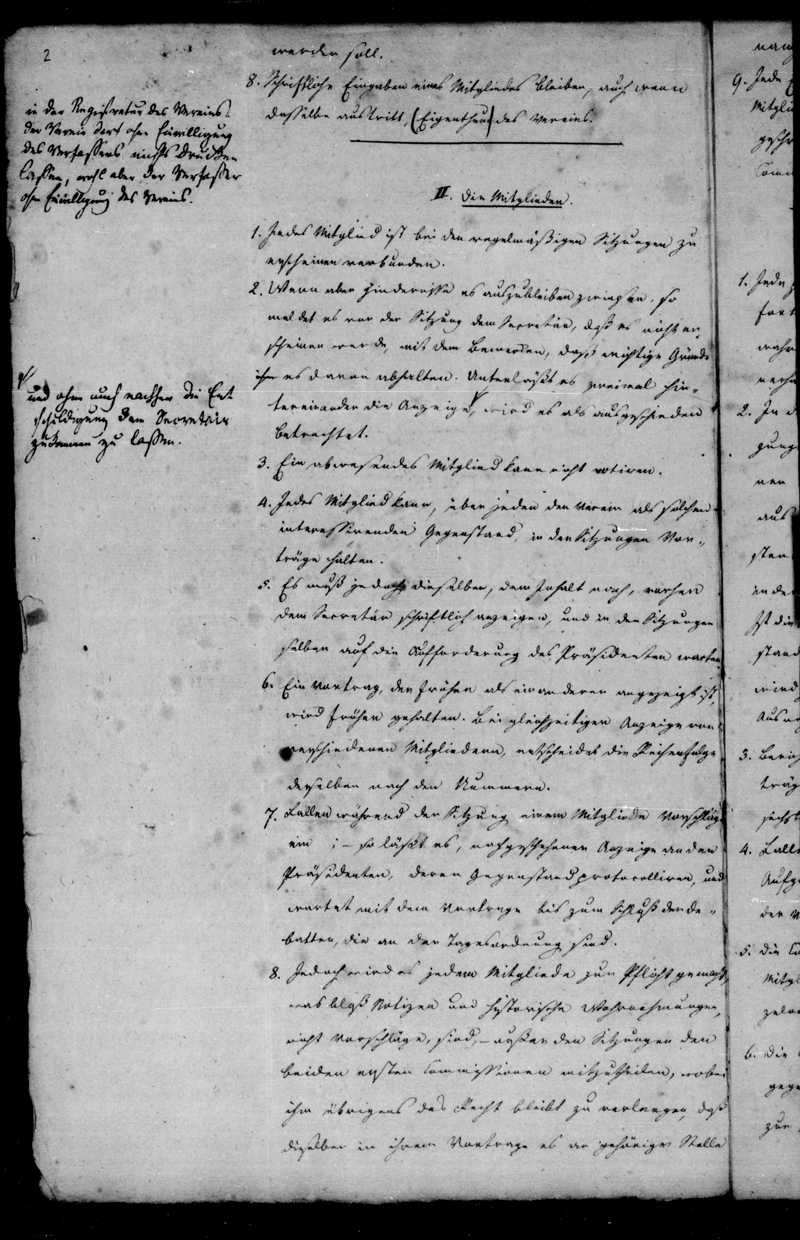 2
werden soll.
8. Schriftliche Eingaben eines Mitgliedes bleiben, auch wenn
dasselbe austritt, (Eigenthum) des Vereins.
in der Registratur des Vereins.
der Verein darf ohne Einwilligung
des Verfassers nichts drucken
lassen, wohl aber der Verfasser
ohne Einwilligung des Vereins.
II. Die Mitglieder.
1. Jedes Mitglied ist bei den regelmäßigen Sitzungen zu
erscheinen verbunden.
2. Wenn aber Hindernisse es auszubleiben zwingen, so
meldet es vor der Sitzung dem Secretär, daß es nicht er,
scheinen werde, mit dem Bemerken, daß wichtige Gründe
ihm es davon abhalten. Unterläßt es zweimal hin-
tereinander die Anzeige, wird es als ausgeschieden
betrachtet.
und ohne auch nachher die Ent
schuldigung dem Secretair
zukommen zu lassen.
3. Ein abwesendes Mitglied kann nicht votiren.
4. Jedes Mitglied kann, über jeden den Verein als solchen
interessirenden Gegenstand, in den Sitzungen Vor-
träge halten.
5. Es muß jedoch dieselben, dem Inhalt nach, vorher
dem Secretär schriftlich anzeigen, und in den Sitzungen
selber auf die Aufforderung des Präsidenten warten.
6. Ein Vortrag, der früher als ein anderer angezeigt ist,
wird früher gehalten. Bei gleichzeitiger Anzeige von
verschiedenen Mitgliedern, entscheidet die Reihenfolge
derselben nach den Nummern.
7. Fallen während der Sitzung einem Mitgliede Vorschläge
ein; – so läßt es, nach geschehener Anzeige an den
Präsidenten, deren Gegenstand protocolliren, und
wartet mit dem Vortrage bis zum Schluß der De-
batten, die an der Tagesordnung sind.
8. Jedoch wird es jedem Mitgliede zur Pflicht gemacht,
was bloß Notizen und historische Wahrnehmungen,
nicht Vorschläge, sind, – außer den Sitzungen den
beiden ersten Commissionen mitzutheilen, wobei
ihm übrigens das Recht bleibt zu verlangen, daß
dieselben in ihrem Vortrage es an gehöriger Stelle
9. Jede
Mitgli
1. Jede
fort
wahr
2. In d
gung
nen
aus
sten
in der
Ist die
stand
wird
3. Berich
träg
4. Falle
Aufg
der V
5. Die Co
Mitgl
6. Die
gege
zur